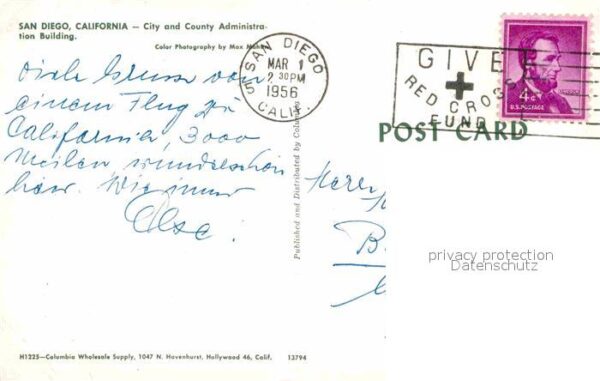 SAN DIEGO, CALIFORNIA — City and County Administra-
tion Building.
Color Photography by Max Mahan
Viele Grüsse von
einem Flug zu
California, 3000
Meilen, wunderschön
hier. Wie immer
Else.
SAN DIEGO
MAR 1
2 30PM
1956
CALIF.
GIVE
RED CROSS
FUND
4¢
U.S. POSTAGE
POST CARD
Published and Distributed by Columbia
Herrn
B
privacy protection
Datenschutz
H1225—Columbia Wholesale Supply, 1047 N. Havenhurst, Hollywood 46, Calif. 13794